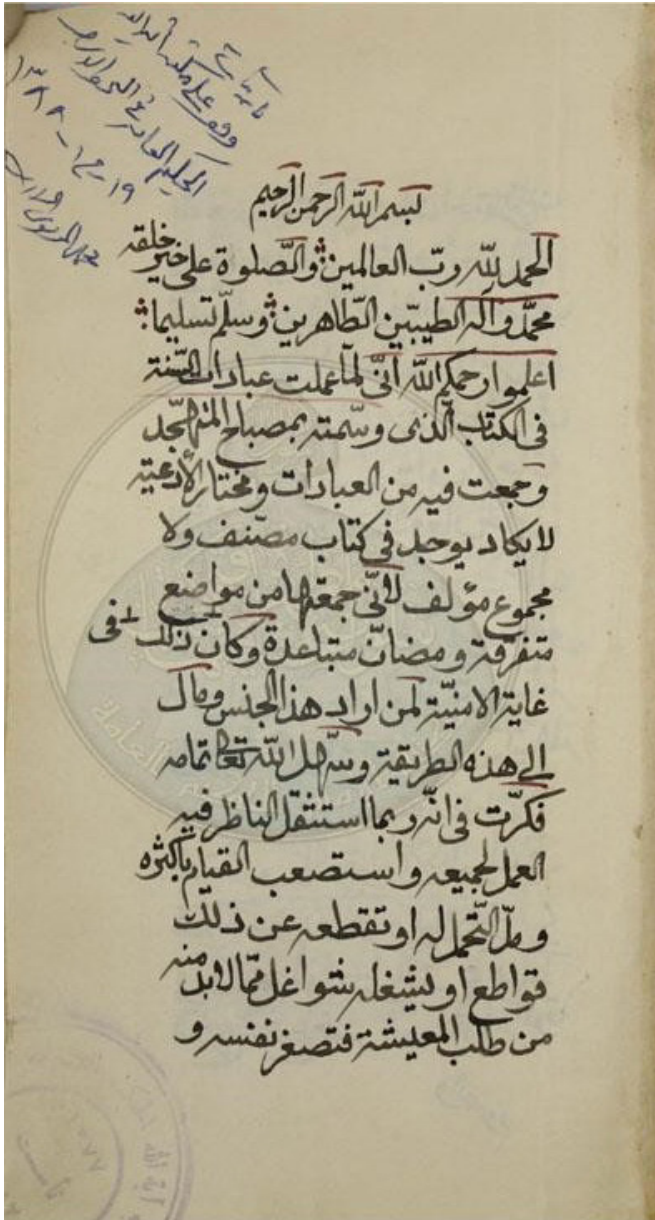 وقف على مكتبة آية الله
الحكيم العامة في النجف الاشرف
١٩ - ١٣٨٨
بسم الله الرحمن الرحيم
الحمد لله رب العالمين والصلوة على خير خلقه
محمد وآله الطيبين الطاهرين وسلم تسليما
اعلموا رحمكم الله انى لما عملت عبادات السنة
فى الكتاب الذى وسمته بمصباح المتهجد
وجمعت فيه من العبادات ومختار الأدعية
لا يكاد يوجد فى كتاب مصنف ولا
مجموع مؤلف لانى جمعتها من مواضع
متفرقة ومضان متباعدة وكان ذلك فى
غاية الامنية لمن اراد هذا الجنس ومال
الى هذه الطريقة وسهل الله تعالى اتمامه
فكرت فى انه ربما استثقل الناظر فيه
العمل لجميعه واستصعب القيام باكثره
ومل التحمل له او تقطعه عن ذلك
قواطع او يشغله شواغل مما لابد منه
من طلب المعيشة فتصغر نفسه و